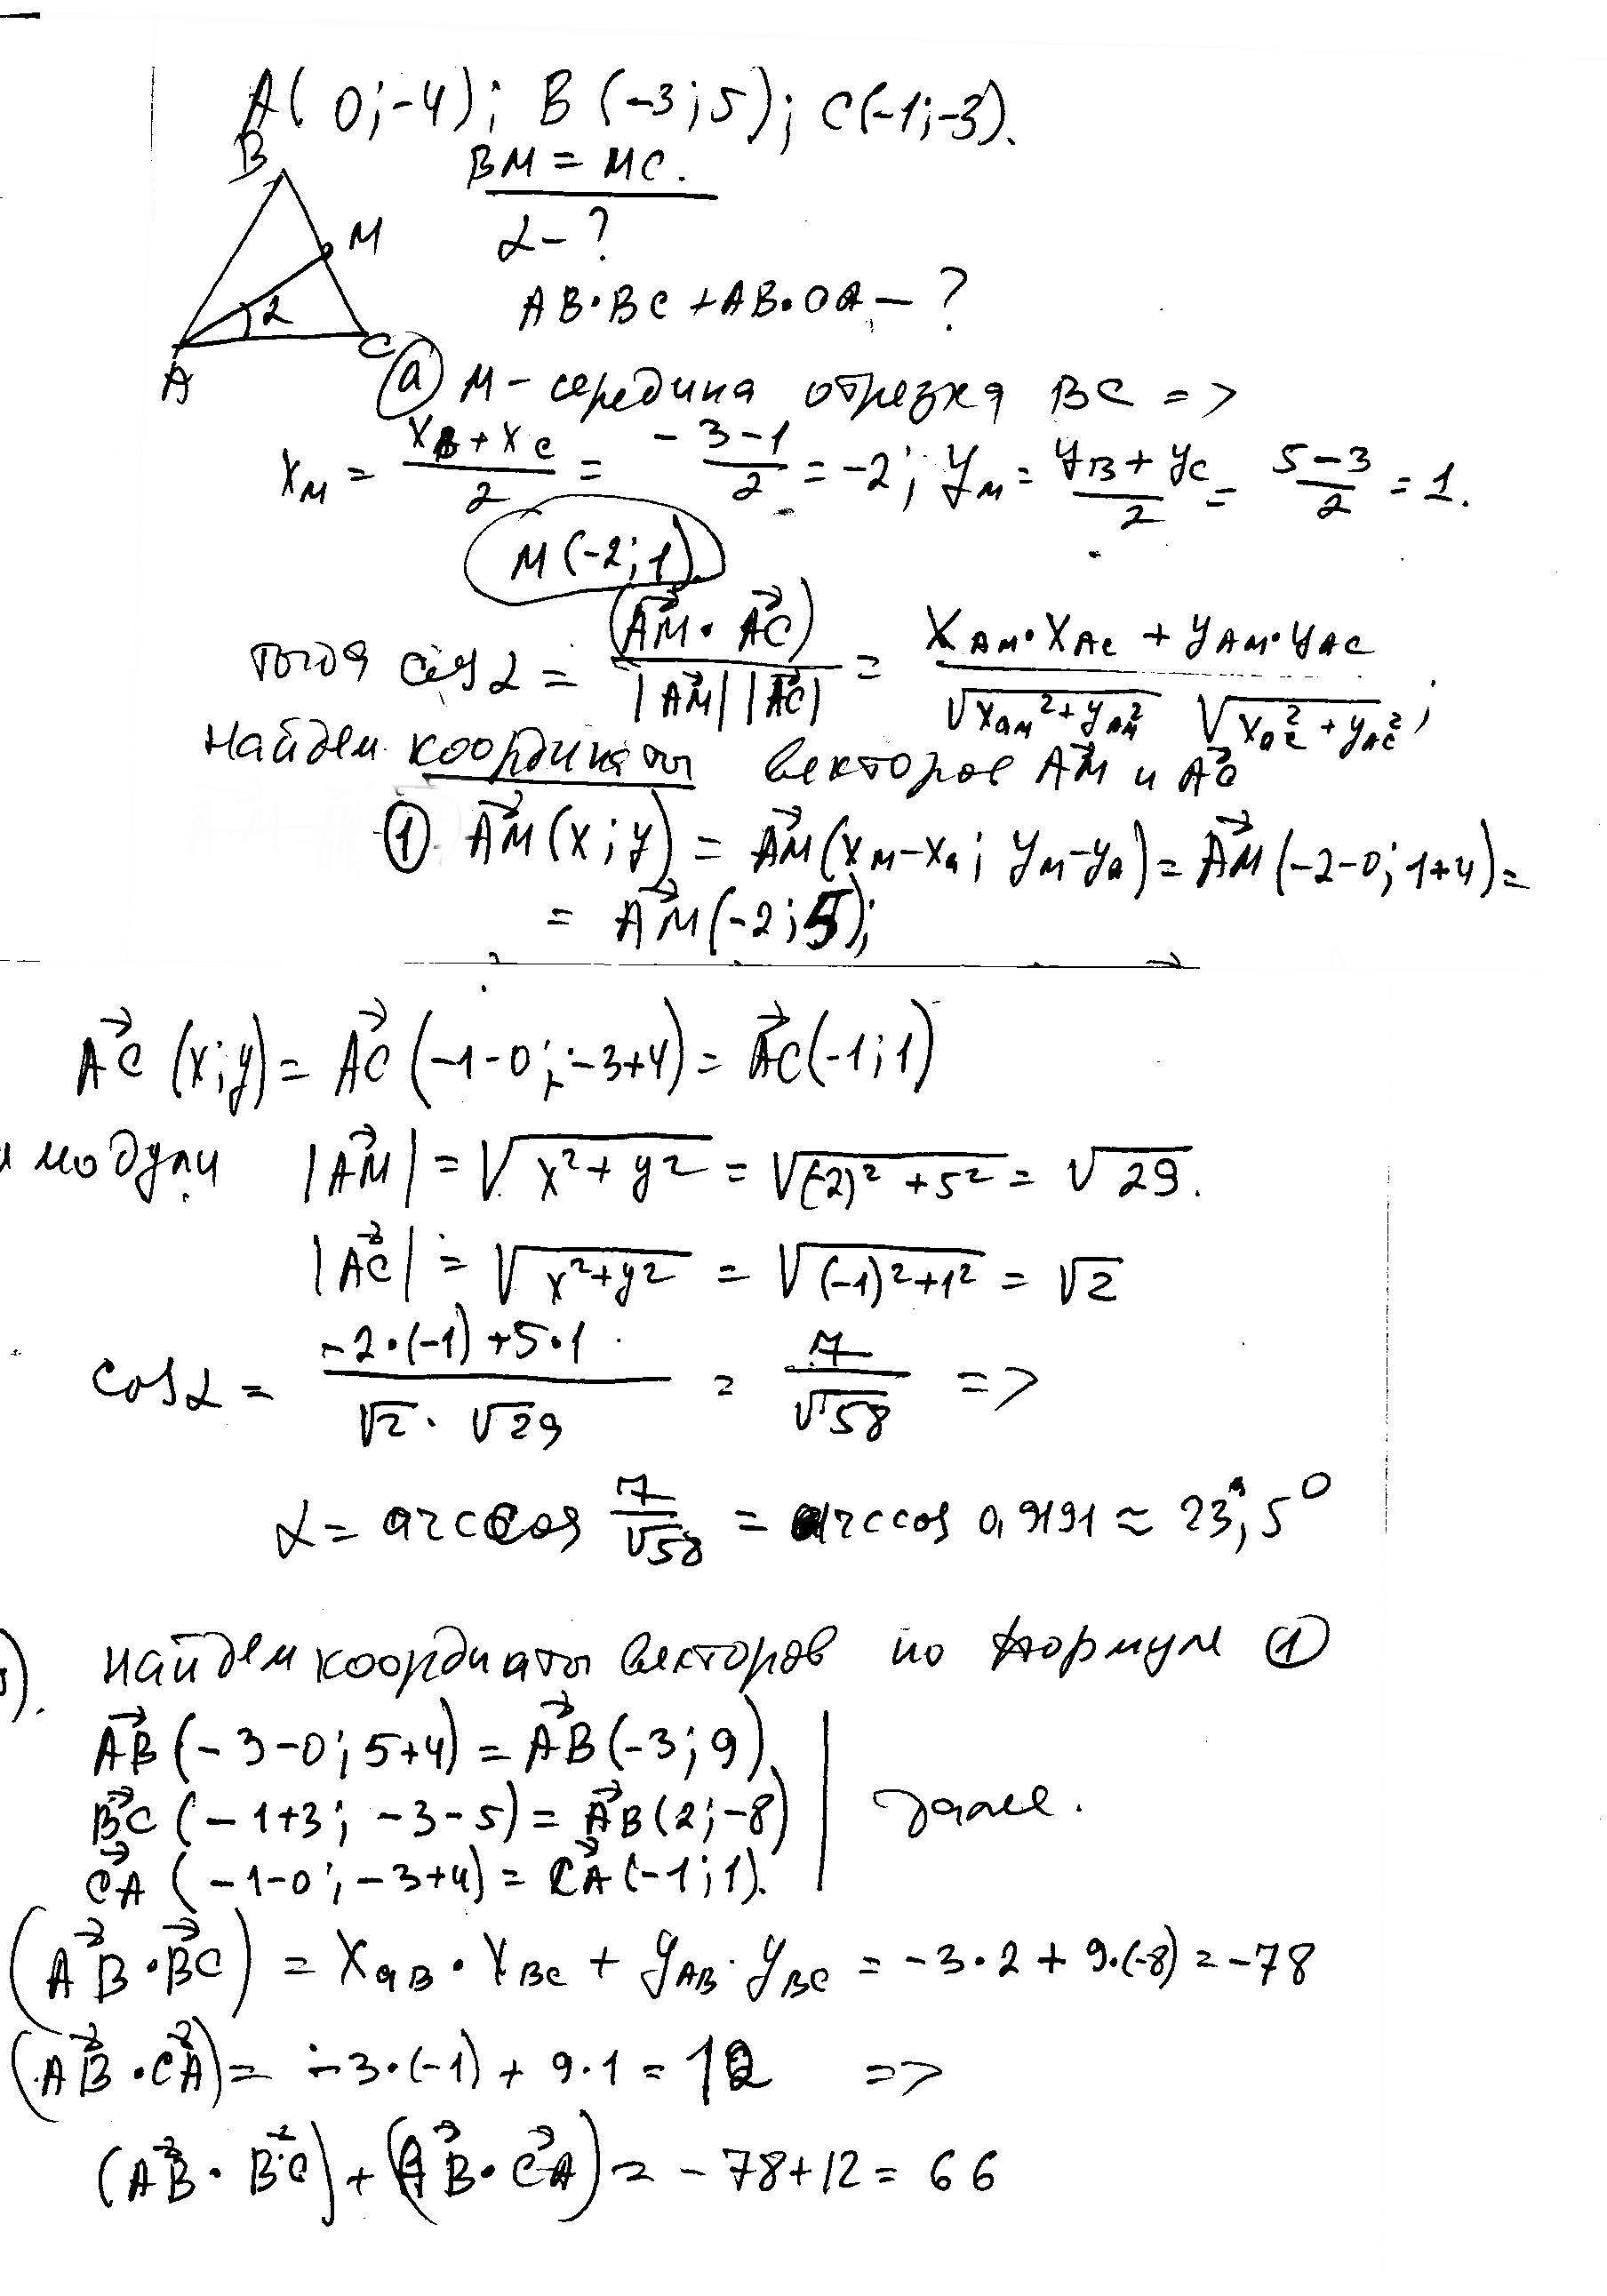 A( 0;-4); B (-3;5); C(-1;-3).
B
BM = MC.
M
α-?
AB·BC+AB·CA-?
α
A
C
(a) M - середина отрезка BC =>
x_M = (x_B + x_C)/2 = (-3-1)/2 = -2; y_M = (y_B + y_C)/2 = (5-3)/2 = 1.
M(-2;1)
тогда cos α = (AM⃗ · AC⃗)/(|AM⃗||AC⃗|) = (x_AM·x_AC + y_AM·y_AC)/(√(x_AM²+y_AM²) √(x_AC²+y_AC²));
Найдем координаты векторов AM⃗ и AC⃗
① AM⃗(x;y) = AM⃗(x_M-x_A; y_M-y_A) = AM⃗(-2-0; 1+4) =
= AM⃗(-2;5);
AC⃗(x;y) = AC⃗(-1-0; -3+4) = AC⃗(-1;1)
и модули |AM⃗| = √(x²+y²) = √((-2)²+5²) = √29.
|AC⃗| = √(x²+y²) = √((-1)²+1²) = √2
cos α = (-2·(-1)+5·1)/(√2·√29) = 7/√58 =>
α = arccos 7/√58 = arccos 0,9191 ≈ 23,5°
). Найдем координаты векторов по формуле ①
AB⃗(-3-0; 5+4) = AB⃗(-3; 9)
BC⃗(-1+3; -3-5) = AB⃗(2;-8)
далее.
CA⃗(-1-0; -3+4) = CA⃗(-1;1).
(AB⃗·BC⃗) = x_AB·x_BC + y_AB·y_BC = -3·2+9·(-8) = -78
(AB⃗·CA⃗) = -3·(-1)+9·1 = 12 =>
(AB⃗·BC⃗)+(AB⃗·CA⃗) = -78+12 = 66